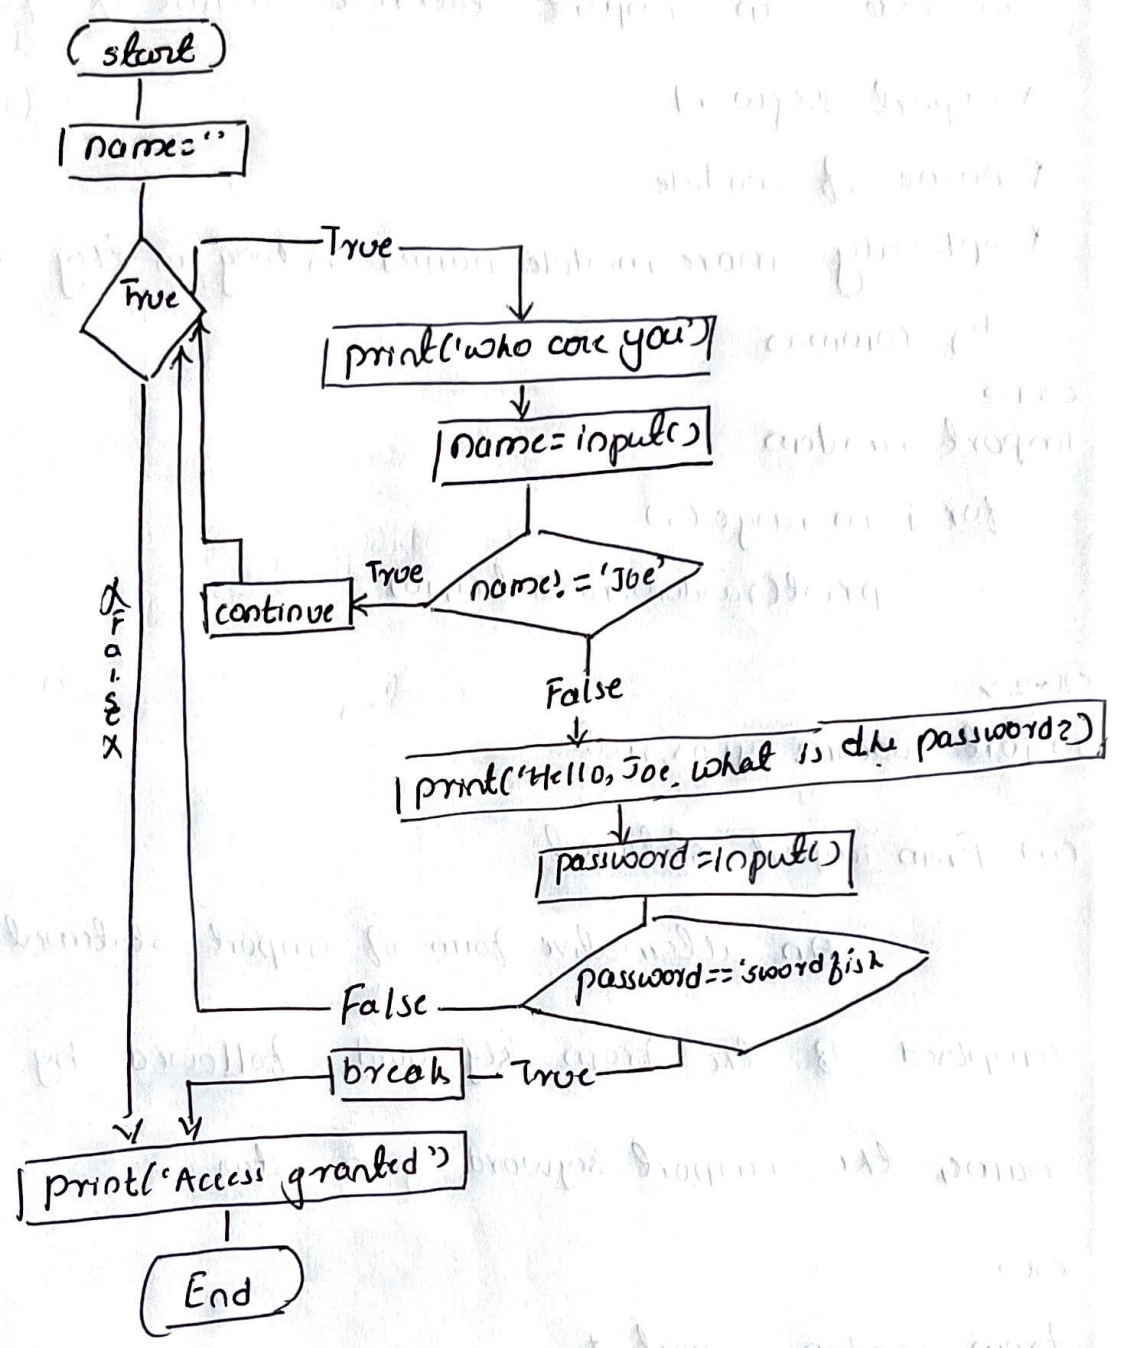 start
name=''
True
True
print('who are you')
name=input()
name!='Joe'
True
continue
False
False
print('Hello, Joe. what is the password?)
password=input()
password=='swordfish
False
True
break
print('Access granted')
End